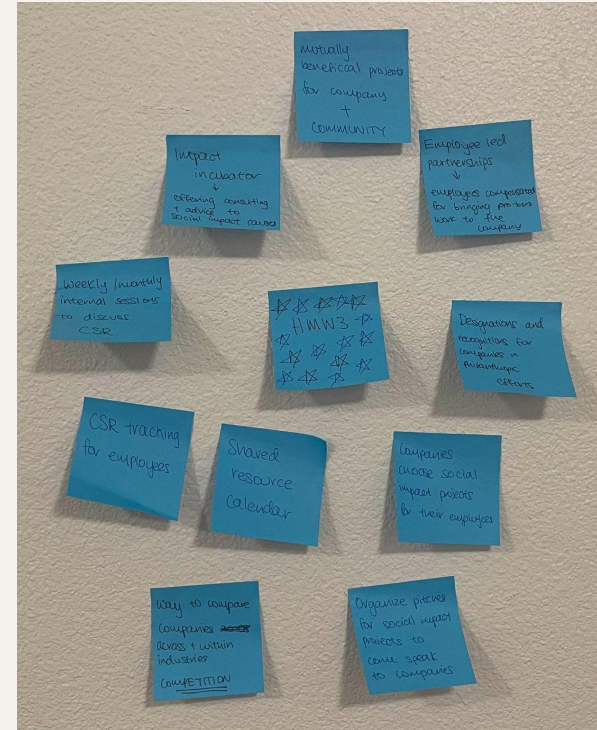 Mutually
beneficial projects
for company
+
COMMUNITY
Impact
incubator
↓
offering consulting
+ advice to
social impact causes
Employee led
partnerships
↓
employees compensated
for bringing pro-bono
work to the
company
Weekly/monthly
internal sessions
to discuss
CSR
HMW3
Designations and
recognitions for
companies in
philanthropic
efforts
CSR tracking
for employees
Shared
resource
calendar
Companies
choose social
impact projects
for their employees
Way to compare
companies
across + within
industries
COMPETITION
Organize pitches
for social impact
projects to
come speak
to companies